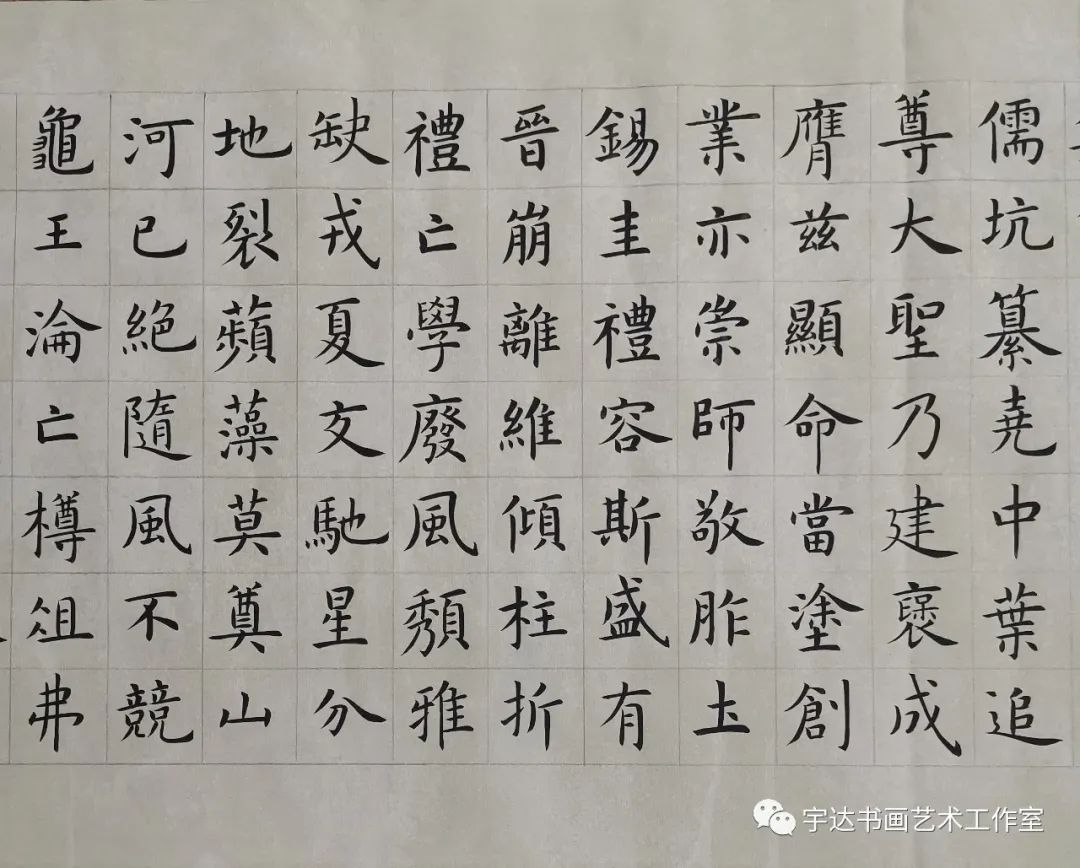 儒坑纂尭中葉追
尊大聖乃建褒成
膺茲顯命當塗創
業亦崇師敬胙土
錫圭禮容斯盛有
晉崩離維傾柱折
禮亡學廢風頽雅
缺戎夏交馳星分
地裂蘋藻莫奠山
河已絕隨風不競
龜玉淪亡樽俎弗
宇达书画艺术工作室